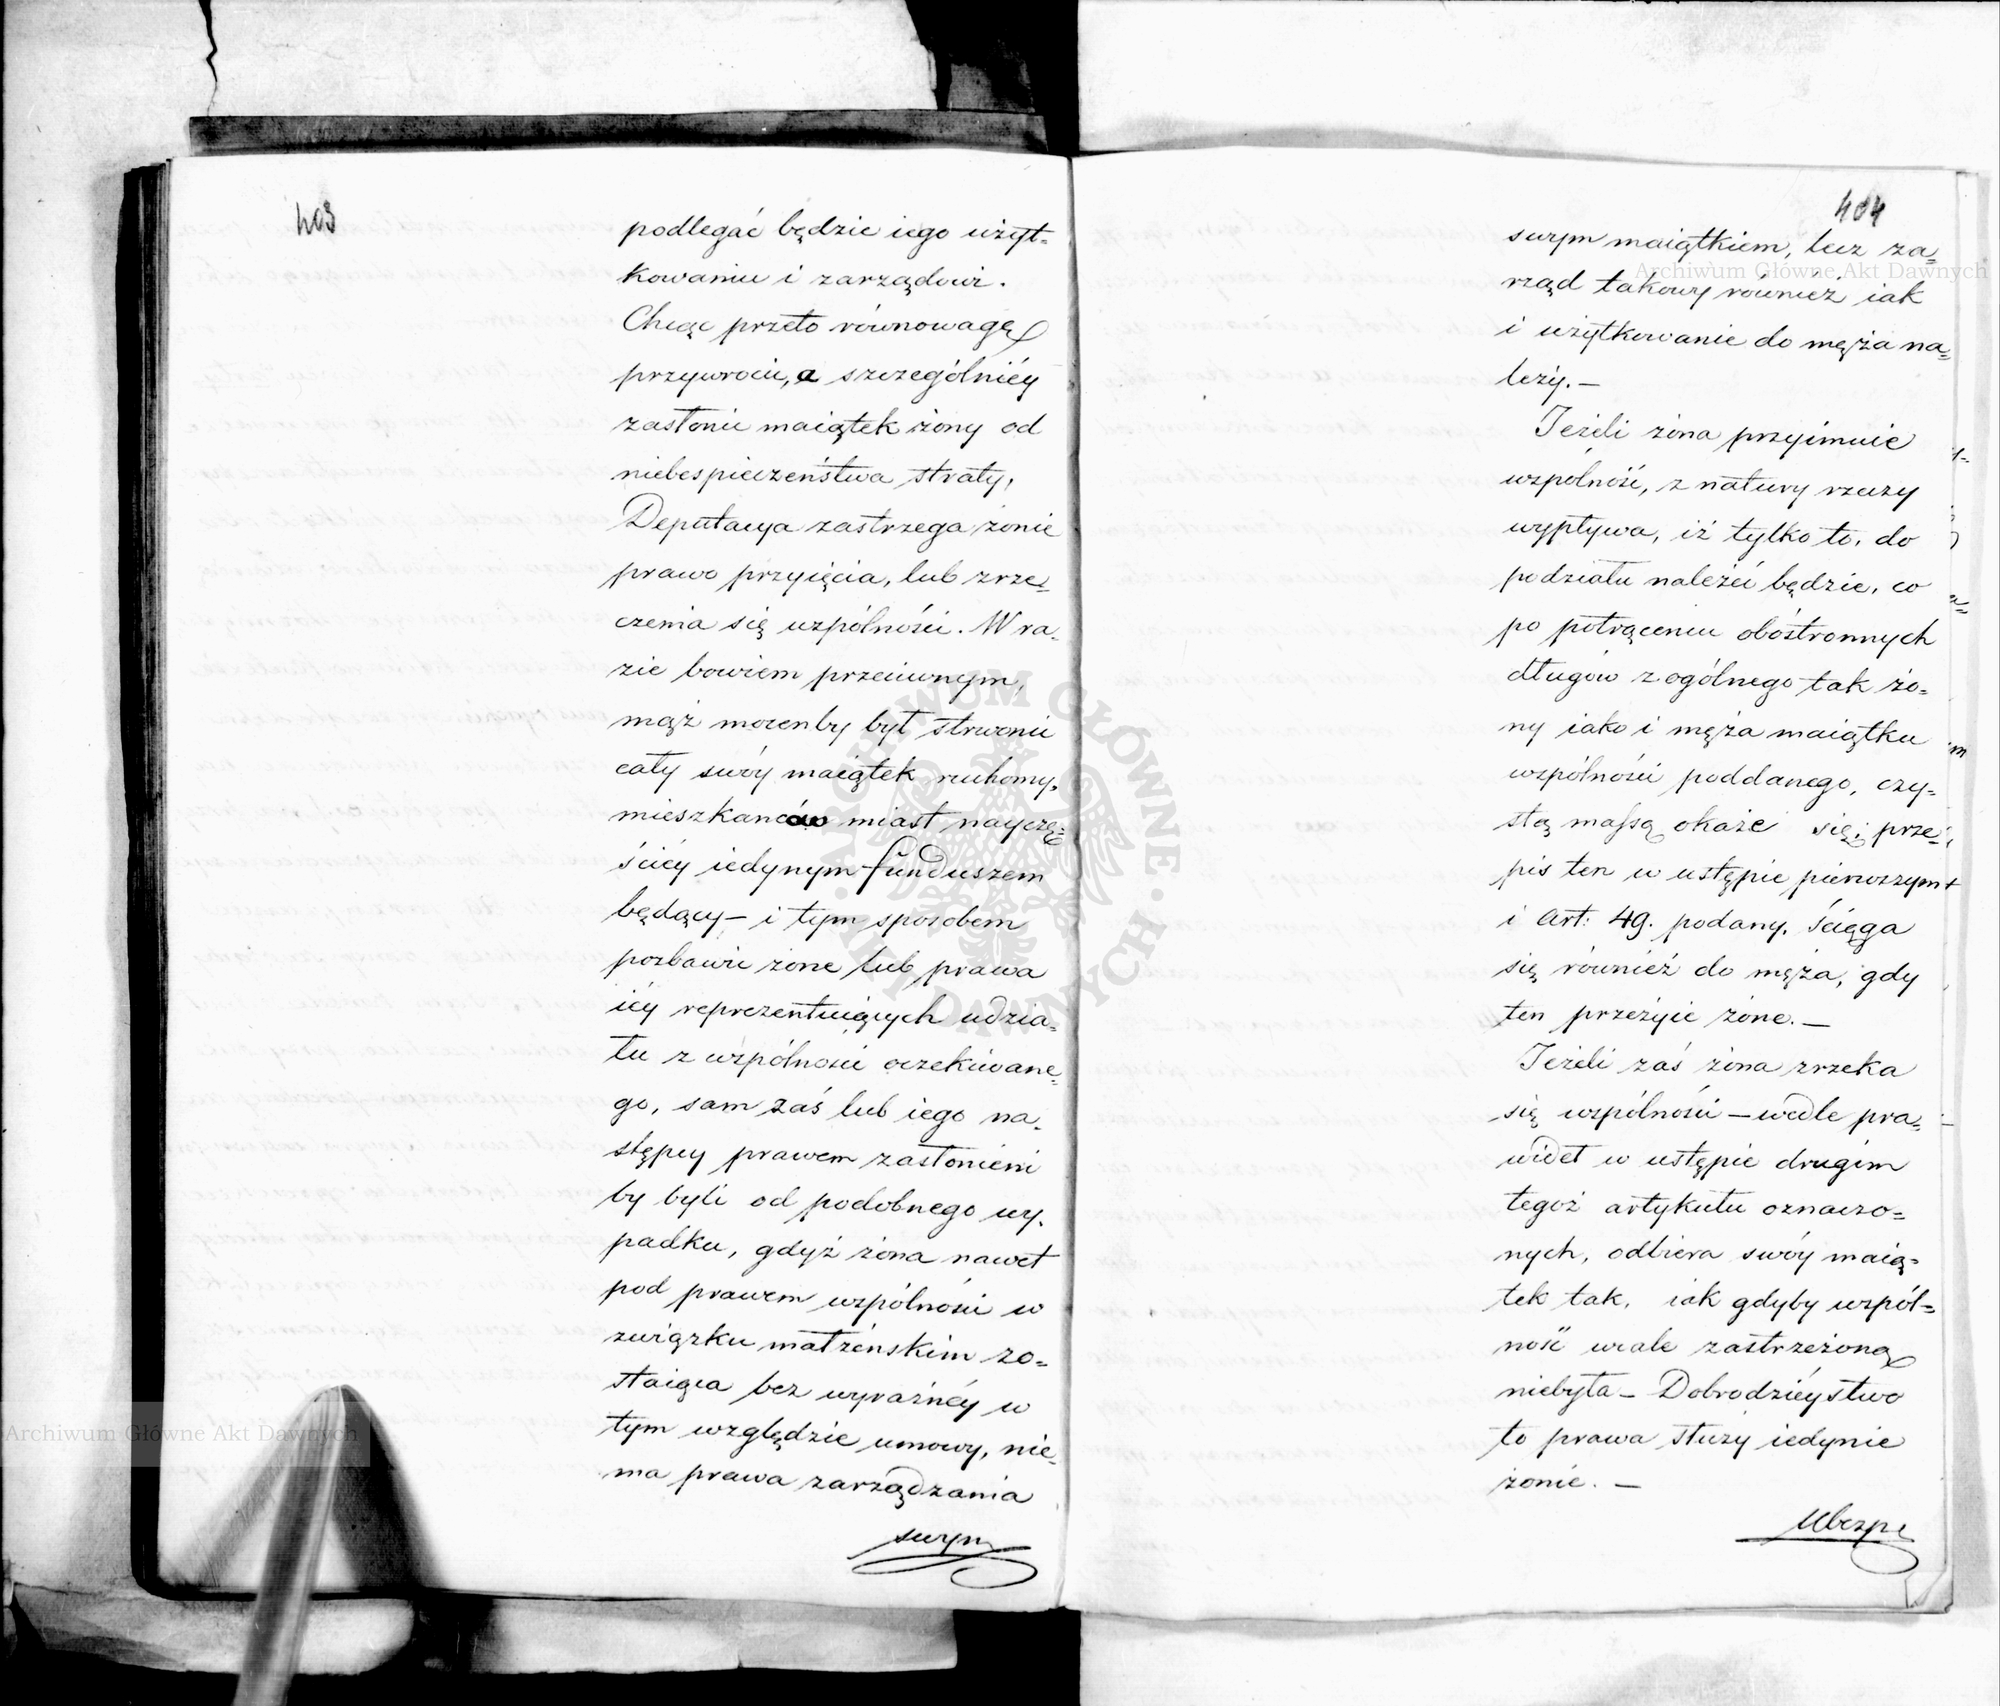 403
podlegać będzie iego użyt-
kowaniu i zarządowi.
Chcąc przeto równowagę
przywrocić, a szczególniéy
zasłonić maiątek żony od
niebespieczeństwa straty,
Deputacya zastrzega żonie
prawo przyięcia, lub zrze-
czenia się wspólności. W ra-
zie bowiem przeciwnym,
mąż mocenby był strwonić
cały swóy maiątek ruchomy,
mieszkanców miast nayczę-
ściéy iedynym funduszem
będący – i tym sposobem
pozbawić żone lub prawa
iéy reprezentuiących udzia-
łu z wspólności oczekiwane-
go, sam zaś lub iego na-
stępcy prawem zasłonieni
by byli od podobnego wy-
padku, gdyż żona nawet
pod prawem wspólności w
związku małżenskim zo-
staiąca bez wyraźnéy w
tym względzie umowy, nie-
ma prawa zarządzania
swym
404
swym maiątkiem, lecz za-
rząd takowy również iak
i użytkowanie do męża na-
leży. –
Jeżeli żona przyimuie
wspólność, z natury rzeczy
wypływa, iż tylko to, do
podziału należéć będzie, co
po potrąceniu obóstronnych
długów z ogólnego tak żo-
ny iako i męża maiątku
wspólności poddanego, czy-
stą massą okaże się; prze-
pis ten w ustępie pierwszym
i Art: 49. podany, ściąga
się również do męża, gdy
ten przeżyie żone. –
Jeżeli zaś żona zrzeka
się wspólności – wedle pra-
wideł w ustępie drugim
tegoż artykułu oznaczo-
nych, odbiera swóy maią-
tek tak, iak gdyby wspól-
ność wcale zastrzeżoną
niebyła – Dobrodziéystwo
to prawa służy iedynie
żonie. –
Ubezpie
Archiwum Główne Akt Dawnych
Archiwum Główne Akt Dawnych
ARCHIWUM GŁÓWNE · AKT DAWNYCH ·